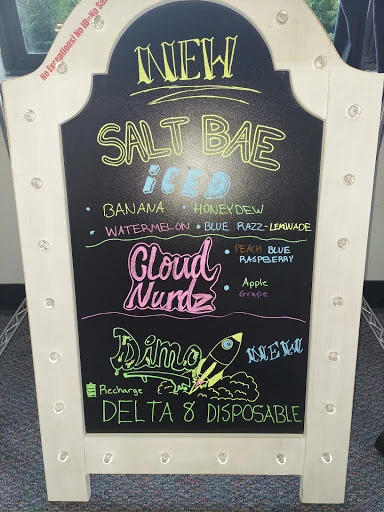 No Exceptions! No ID=No Sa
NEW
SALT BAE
iCED
• BANANA • HONEYDEW
• WATERMELON • BLUE RAZZ-LEMONADE
Cloud
Nurdz
• PEACH BLUE
RASPBERRY
• Apple
Grape
Dimo
NEW
Recharge
DELTA 8 DISPOSABLE